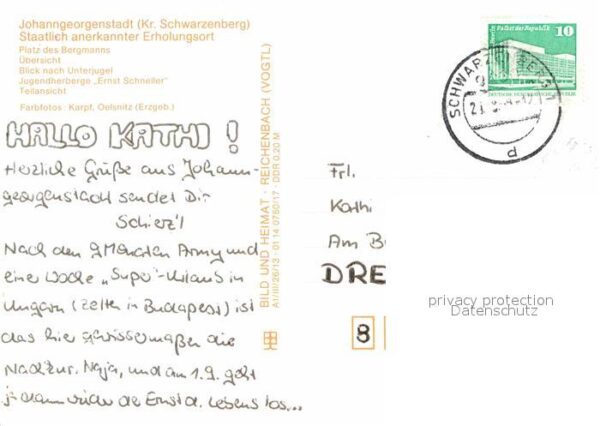 Johanngeorgenstadt (Kr. Schwarzenberg)
Staatlich anerkannter Erholungsort
Platz des Bergmanns
Übersicht
Blick nach Unterjugel
Jugendherberge „Ernst Schneller“
Teilansicht
Farbfotos: Karpf, Oelsnitz (Erzgeb.)
HALLO KATHI!
Herzliche Grüße aus Johann-
georgenstadt sendet Dir
Schierz'l
Nach den 9 Monaten Army und
eine Woche „Super“-Urlaub in
Ungarn (Zelten in Budapest) ist
das hier gewissermaßen die
Nachkur. Naja, und am 1.9. geht
ja dann wieder der Ernst d. Lebens los...
BILD UND HEIMAT · REICHENBACH (VOGTL)
A1/III/26/13 · 01 14 0750/17 · DDR 0,20 M
Palast der Republik
10
SCHWARZENBERG 1
d
Frl.
Kathi
Am B
DRE
8
privacy protection
Datenschutz